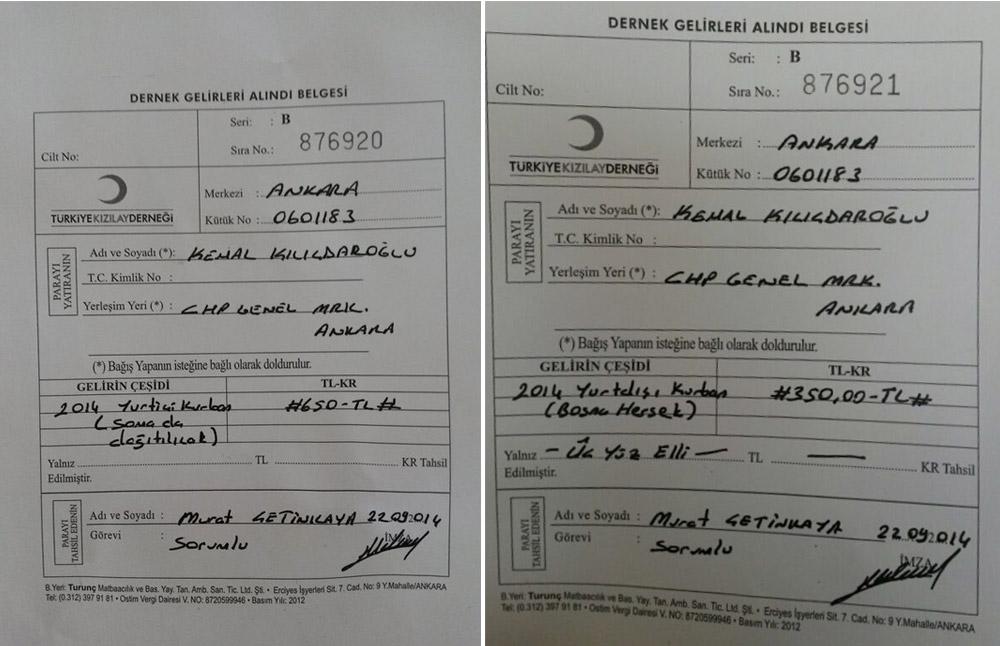 DERNEK GELİRLERİ ALINDI BELGESİ
Cilt No:
Seri: : B
Sıra No.: 876920
TÜRKİYEKIZILAYDERNEĞİ
Merkezi : ANKARA
Kütük No : 0601183
PARAYI YATIRANIN
Adı ve Soyadı (*): KEMAL KILIÇDAROĞLU
T.C. Kimlik No :
Yerleşim Yeri (*) : CHP GENEL MRK.
ANKARA
(*) Bağış Yapanın isteğine bağlı olarak doldurulur.
GELİRİN ÇEŞİDİ TL-KR
2014 Yurtiçi Kurban #650-TL#
(Soma da
dağıtılıcak)
Yalnız TL KR Tahsil
Edilmiştir.
PARAYI TAHSİL EDENİN
Adı ve Soyadı : Murat ÇETİNKAYA 22.09.2014
Görevi : Sorumlu İMZA
B.Yeri: Turunç Matbaacılık ve Bas. Yay. Tan. Amb. San. Tic. Ltd. Şti. • Erciyes İşyerleri Sit. 7. Cad. No: 9 Y.Mahalle/ANKARA
Tel: (0.312) 397 91 81 • Ostim Vergi Dairesi V. NO: 8720599946 • Basım Yılı: 2012
DERNEK GELİRLERİ ALINDI BELGESİ
Cilt No:
Seri: : B
Sıra No.: 876921
TÜRKİYEKIZILAYDERNEĞİ
Merkezi : ANKARA
Kütük No : 0601183
PARAYI YATIRANIN
Adı ve Soyadı (*): KEMAL KILIÇDAROĞLU
T.C. Kimlik No :
Yerleşim Yeri (*) : CHP GENEL MRK.
ANKARA
(*) Bağış Yapanın isteğine bağlı olarak doldurulur.
GELİRİN ÇEŞİDİ TL-KR
2014 Yurtdışı Kurban #350,00-TL#
(Bosna Hersek)
Yalnız - Üç Yüz Elli — TL — KR Tahsil
Edilmiştir.
PARAYI TAHSİL EDENİN
Adı ve Soyadı : Murat ÇETİNKAYA 22.09.2014
Görevi : Sorumlu İMZA
B.Yeri: Turunç Matbaacılık ve Bas. Yay. Tan. Amb. San. Tic. Ltd. Şti. • Erciyes İşyerleri Sit. 7. Cad. No: 9 Y.Mahalle/ANKARA
Tel: (0.312) 397 91 81 • Ostim Vergi Dairesi V. NO: 8720599946 • Basım Yılı: 2012